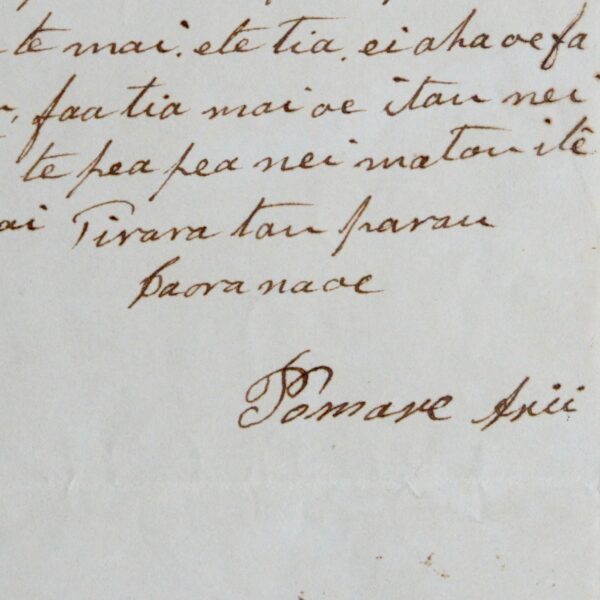 te mai. ete tia. ei aha oe fa
faatia mai oe itau nei
te peapea nei matou ite
ai Tirara tau parau
Iaorana oe
Pomare Arii